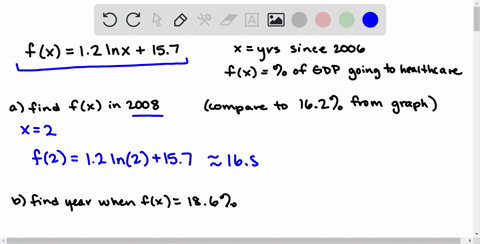 f(x) = 1.2 ln x + 15.7
x = yrs since 2006
f(x) = % of GDP going to healthcare
a) find f(x) in 2008 (compare to 16.2% from graph)
x = 2
f(2) = 1.2 ln(2) + 15.7 ≈ 16.5
b) find year when f(x) = 18.6%